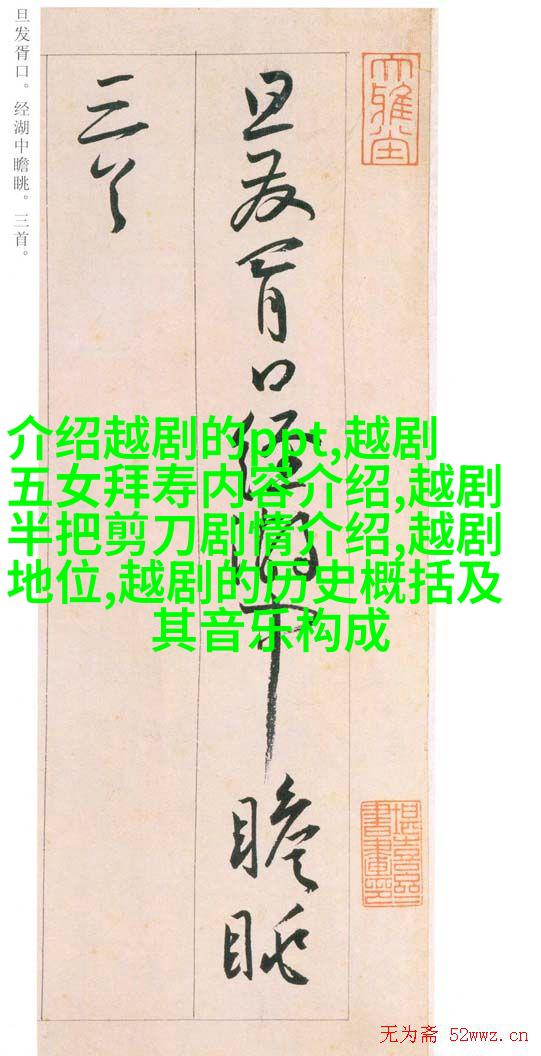 旦发胥口。经湖中瞻眺。三首。
旦发胥口经湖中瞻眺
三首
大雅堂
介绍越剧的ppt,越剧
五女拜寿内容介绍,越剧
半把剪刀剧情介绍,越剧
地位,越剧的历史概括及
其音乐构成
无为斋 52wwz.cn